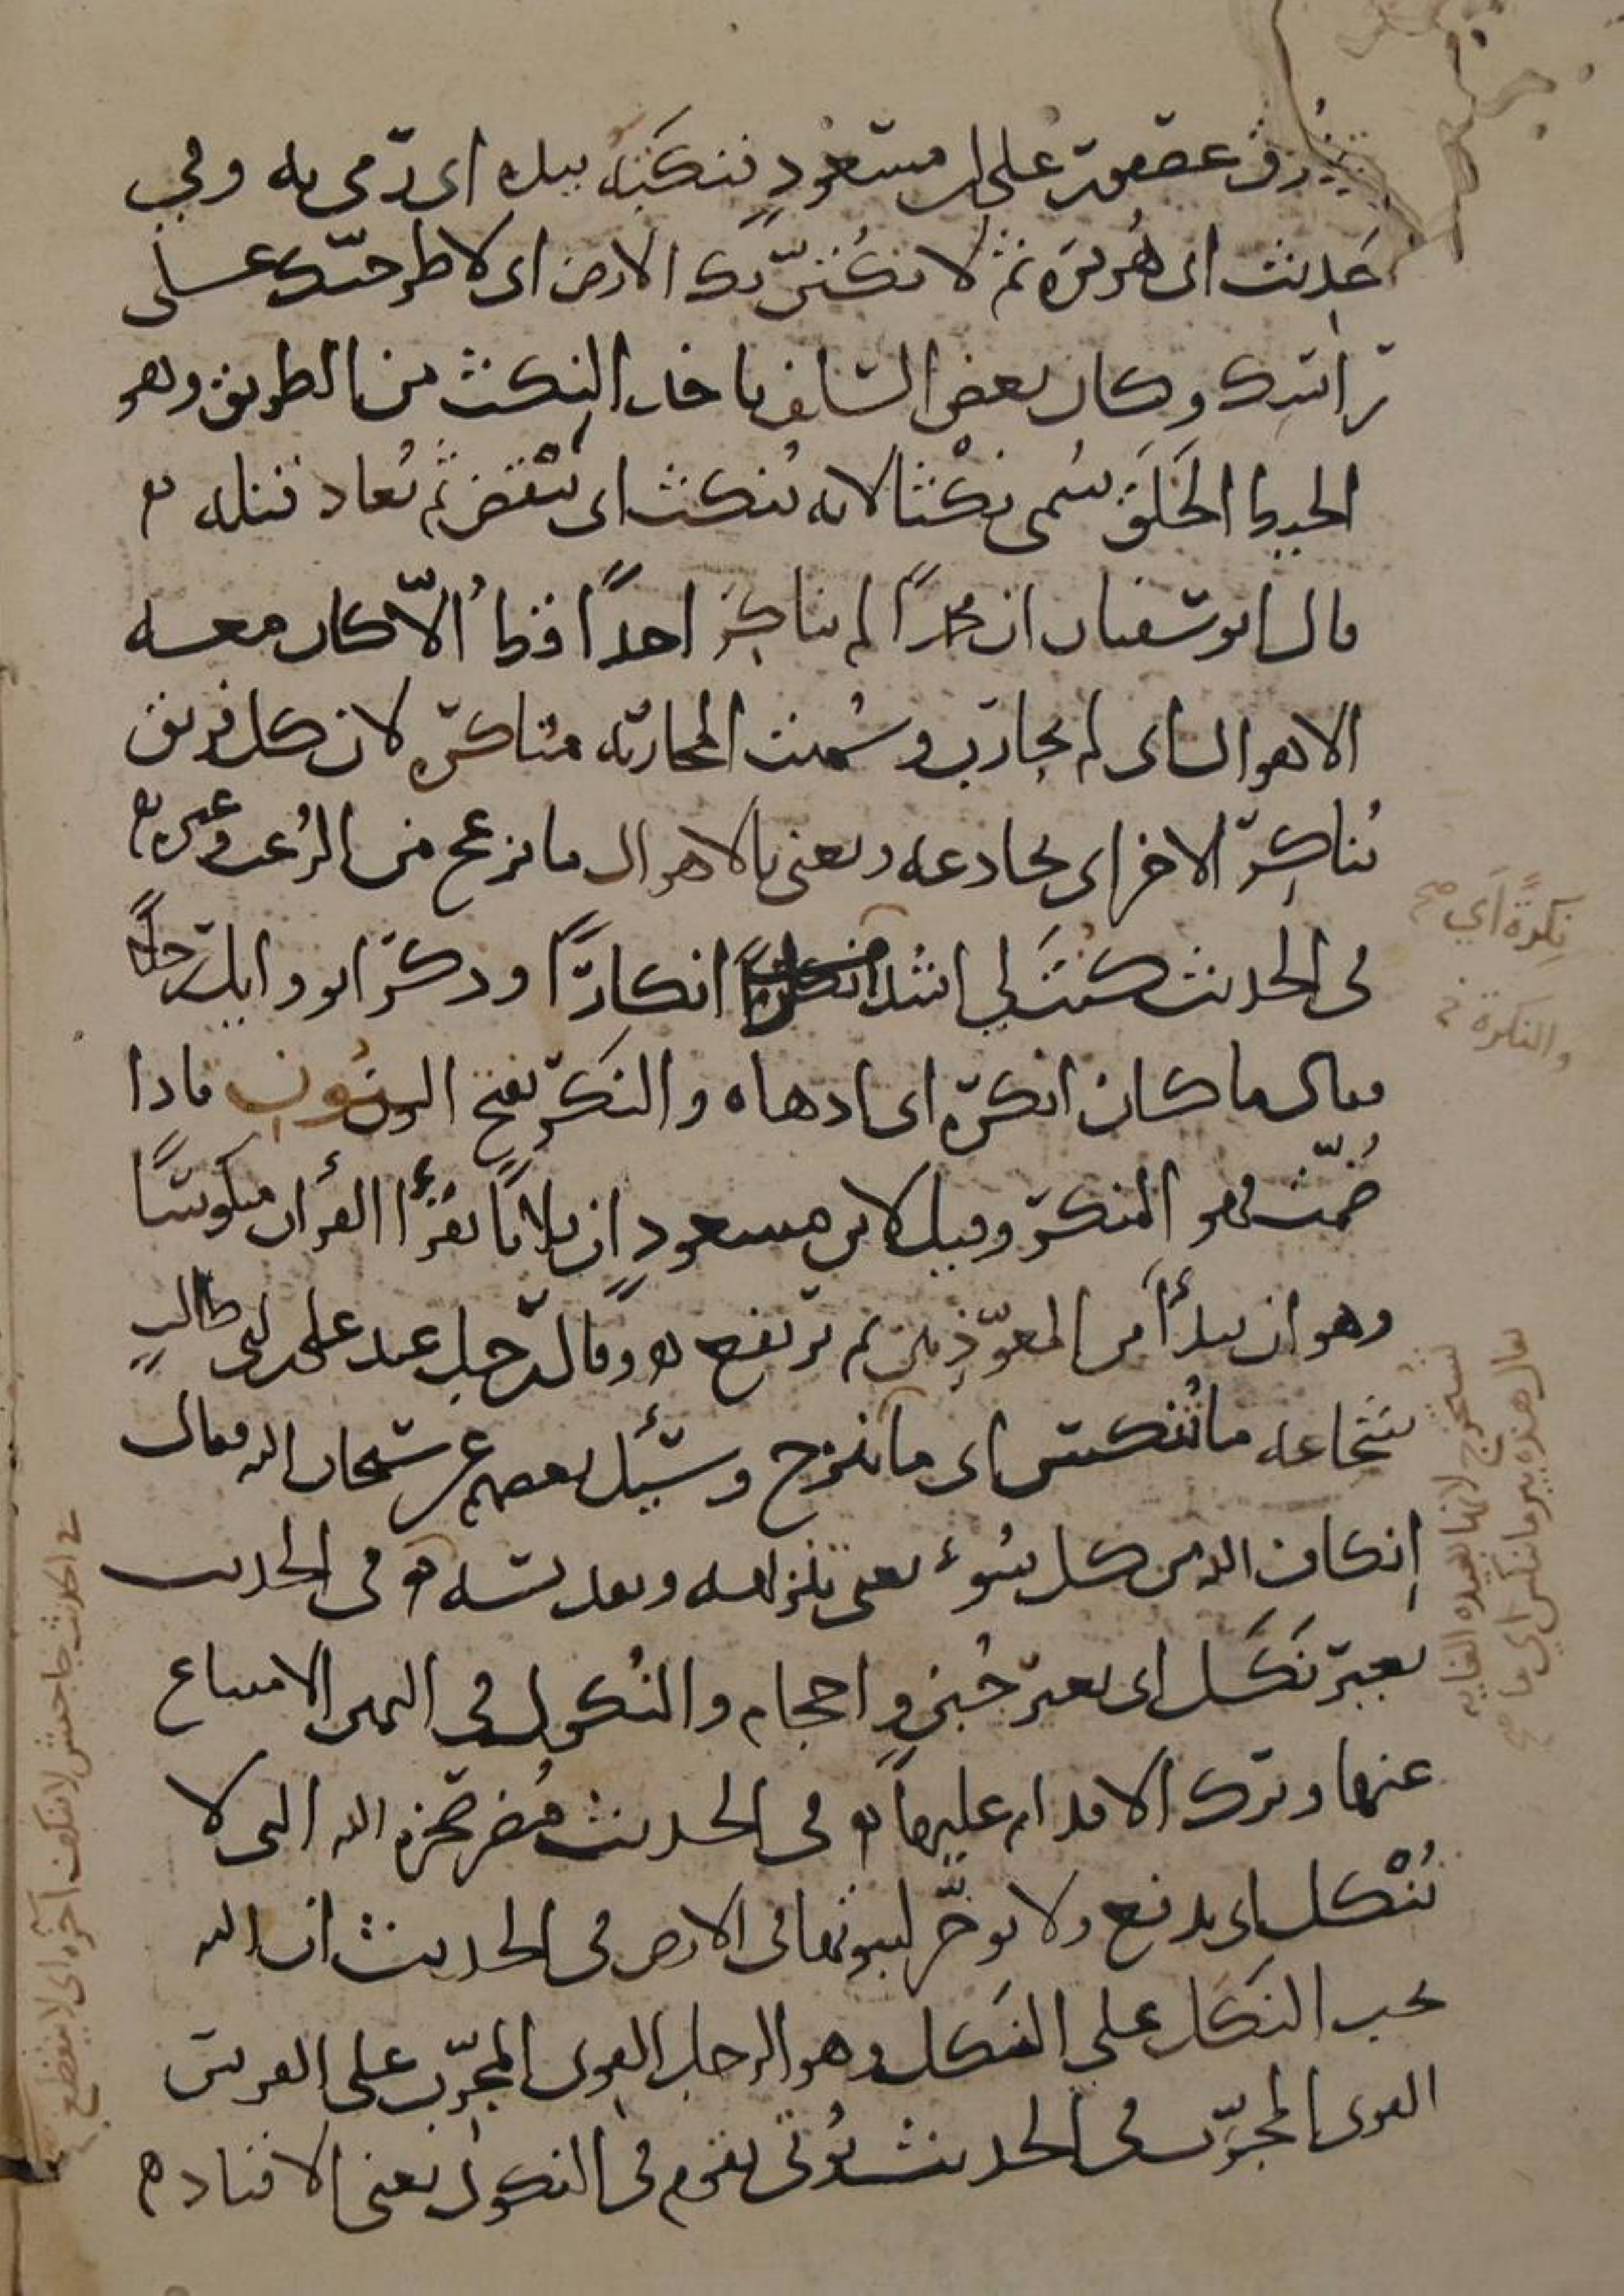 ذرق عصفور على ابن مسعود فنكته بيده اى رمى به وفي
حديث ابى هريرة ثم لانكتن بك الارض اى لاطرحنك على
راسك وكان بعض السلف ياخذ النكث من الطريق وهو
الخيط الخلق سمى نكثا لانه ينكث اى ينقض ثم يعاد فتله
قال ابو سفيان ان محمدا لم يناكر احدا قط الا كان معه
الاهوال اى لم يحارب وسميت المحاربة مناكرة لان كل فريق
يناكر الاخر اى يخادعه ويعنى بالاهوال ما يزعج من الرعب وغيره
فى الحديث كنت لي اشد انكارا وذكر ابو وايل رجلا
فقال ما كان انكره اى ادهاه والنكر بفتح النون فاذا
ضمت فهو المنكر وقيل لابن مسعود ان فلانا يقرأ القرآن منكوسا
وهو ان يبدأ من المعوذتين ثم يرتفع وقال رجل عند على بن ابى طالب
شجاعه ما تنكش اى ما تنزح وسئل بعضهم عن سبحان الله فقال
انكاف الله من كل سوء يعنى تنزيهه وتقديسه فى الحديث
بعير نكل اى بغير جبن واحجام والنكول فى اليمين الامتناع
عنها وترك الاقدام عليها فى الحديث مضر صخرة الله التى لا
تنكل اى لا تدفع ولا توخر لثبوتها فى الارض فى الحديث ان الله
يحب النكل على النكل وهو الرجل القوى المجرب على الفرس
القوى المجرب فى الحديث يوتى بقوم فى النكول يعنى الاقياد
نكرة اي صح
والنكرة
يقال هذه بير ما تنكش اي ما
تستخرج لانها بعيدة الغاية
في الحديث جا جيش لا ينكف آخره اى لا ينقطع